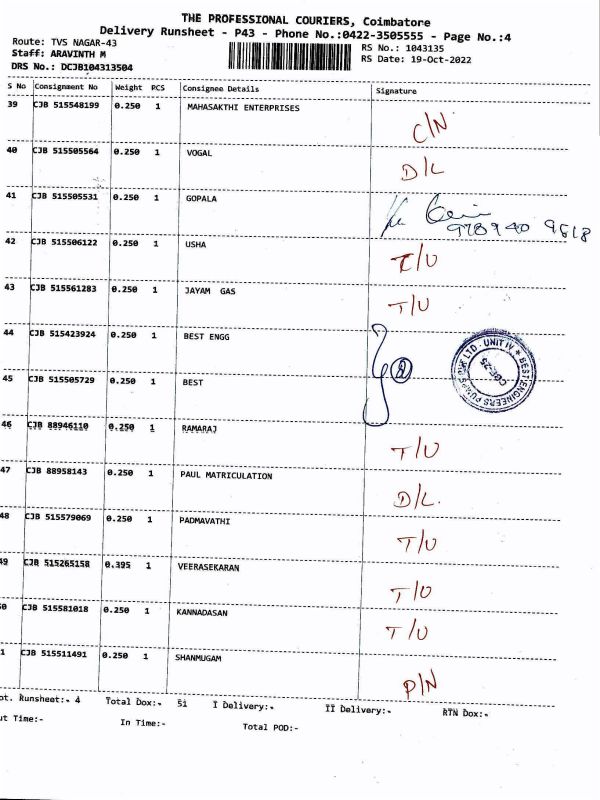 THE PROFESSIONAL COURIERS, Coimbatore
Delivery Runsheet - P43 - Phone No.:0422-3505555 - Page No.:4
Route: TVS NAGAR-43 RS No.: 1043135
Staff: ARAVINTH M RS Date: 19-Oct-2022
DRS No.: DCJB104313504
S No Consignment No Weight PCS Consignee Details Signature
39 CJB 515548199 0.250 1 MAHASAKTHI ENTERPRISES C/N
40 CJB 515505564 0.250 1 VOGAL D/L
41 CJB 515505531 0.250 1 GOPALA 978940 9618
42 CJB 515506122 0.250 1 USHA T/U
43 CJB 515561283 0.250 1 JAYAM GAS T/U
44 CJB 515423924 0.250 1 BEST ENGG
BEST ENGINEERS PUMPS PVT LTD. UNIT IV
CBE-25
45 CJB 515505729 0.250 1 BEST
46 CJB 88946110 0.250 1 RAMARAJ T/U
47 CJB 88958143 0.250 1 PAUL MATRICULATION D/L.
48 CJB 515579069 0.250 1 PADMAVATHI T/U
49 CJB 515265158 0.395 1 VEERASEKARAN T/U
0 CJB 515581018 0.250 1 KANNADASAN T/U
1 CJB 515511491 0.250 1 SHANMUGAM P/N
ot. Runsheet:- 4 Total Dox:- 51 I Delivery:- II Delivery:- RTN Dox:-
ut Time:- In Time:- Total POD:-